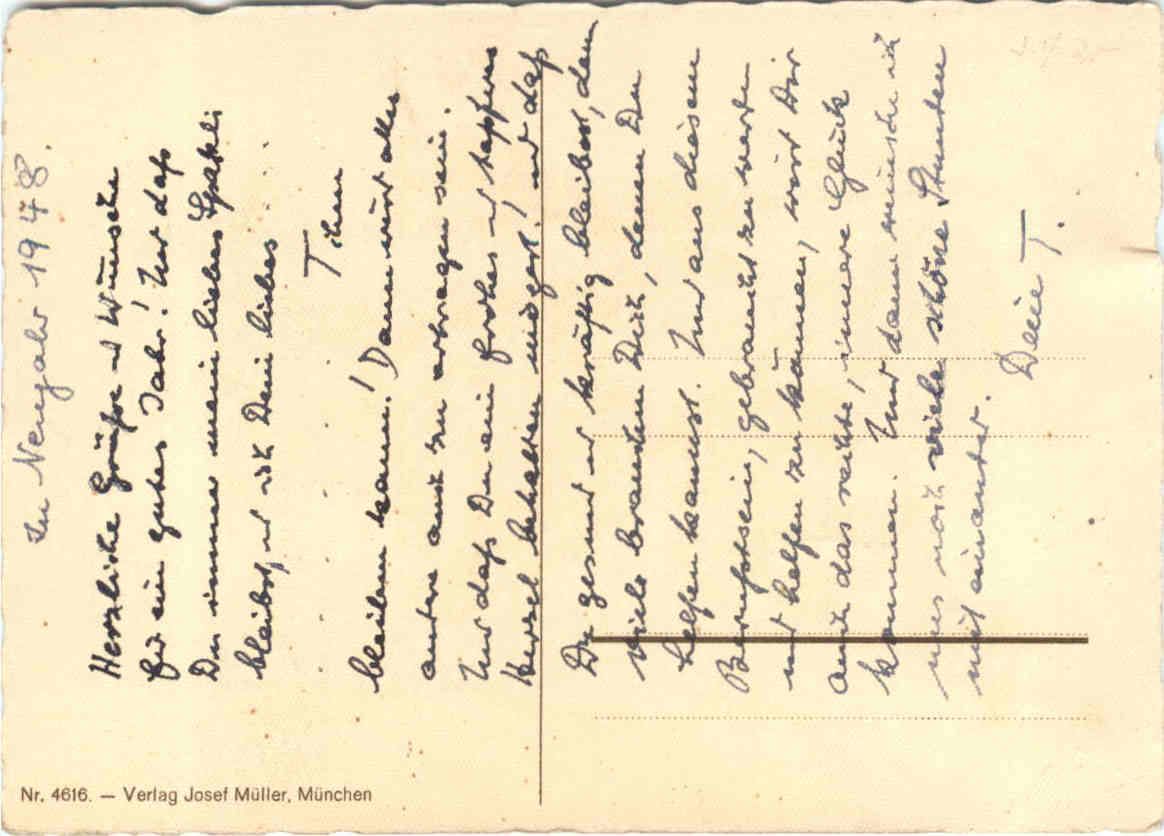 Zu Neujahr 1948.
Herzliche Grüße und Wünsche
für ein gutes Jahr! Und daß
Du immer mein liebes
bleibst, und ich Dein liebes
bleiben kann! Dann wird alles
andre auch zu ertragen sein.
Und daß Du ein frohes und tapferes
Herzel behalten mögest! und daß
Du gesund und kräftig bleibst, denn
viele brauchen Dich, denen Du
helfen kannst. Und aus diesem
Berufstsein, gebraucht zu werden
und helfen zu können, wird Dir
auch das rechte, innere Glück
kommen. Und dann wünsche ich
uns noch viele schöne Stunden
mit einander.
Deine T.
Nr. 4616. — Verlag Josef Müller, München